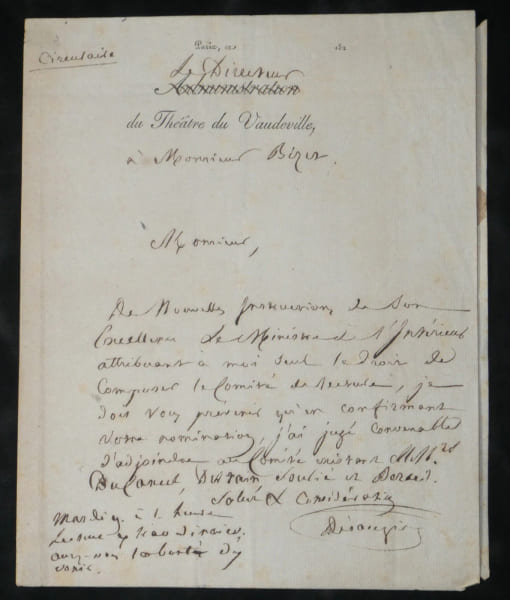 Circulaire
Paris, ce 182
Le Directeur
Administration
du Théâtre du Vaudeville,
à Monsieur
Monsieur,
De Nouvelles Instructions de Son
Excellence Le Ministre de l'Intérieur
attribuant à moi seul le droit de
Composer le Comité de lecture, je
dois vous prévenir qu'en confirmant
votre nomination, j'ai jugé convenable
d'adjoindre au Comité existant M.Mrs
Soulié et
Salut & Considération
Désaugiers
Mardi à 1 heure
Lecture
avez